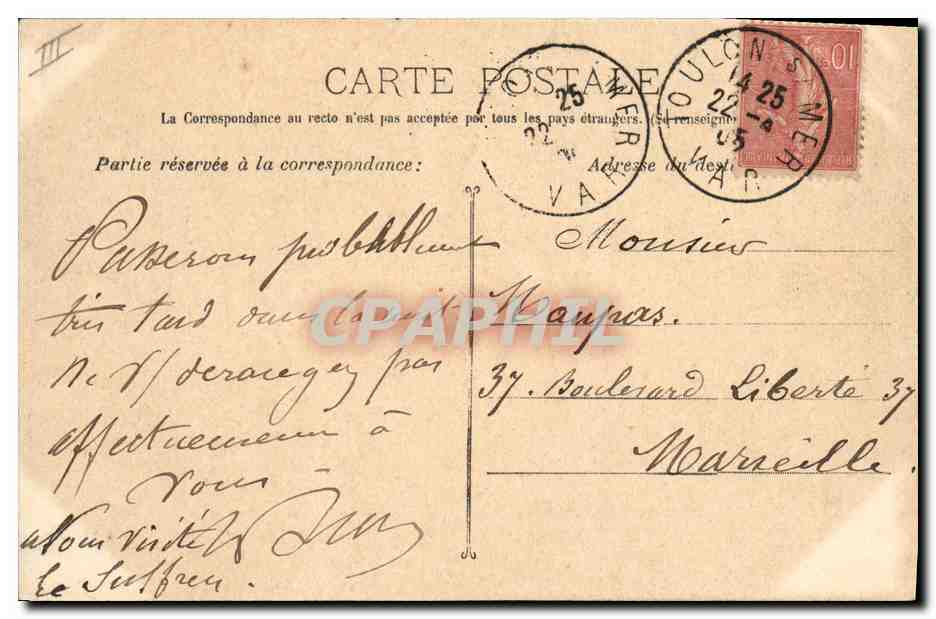 III
CARTE POSTALE
La Correspondance au recto n'est pas acceptée par tous les pays étrangers. (Se renseigner
Partie réservée à la correspondance:
Adresse du dest
TOULON S MER
14 25
22 -4
05
VAR
25
22
MER
VAR
10
Passerons probablement
très tard dans la nuit
Ne V/ derangez pas
affectueusement à
vous
Nous visité
le Suffren.
Monsieur
Maupas.
37. Boulevard Liberté 37
Marseille.
CPAPHIL